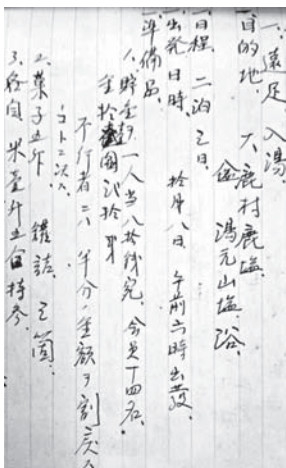 一、遠足 入湯、
一、目的地、大鹿村鹿塩、
湯元山塩浴、
一、日程 二泊三日、
一、出発日時、拾月八日、午前六時出發、
一、準備品、
1、貯金 一人当八拾銭宛、会員十四名、
金拾壹圓弐拾銭
不行者ニハ半分ノ金額ヲ割戻ス
コトニ決ス
2、菓子五斤 鑵詰 三箇
3、各自 米壹升五合持参、